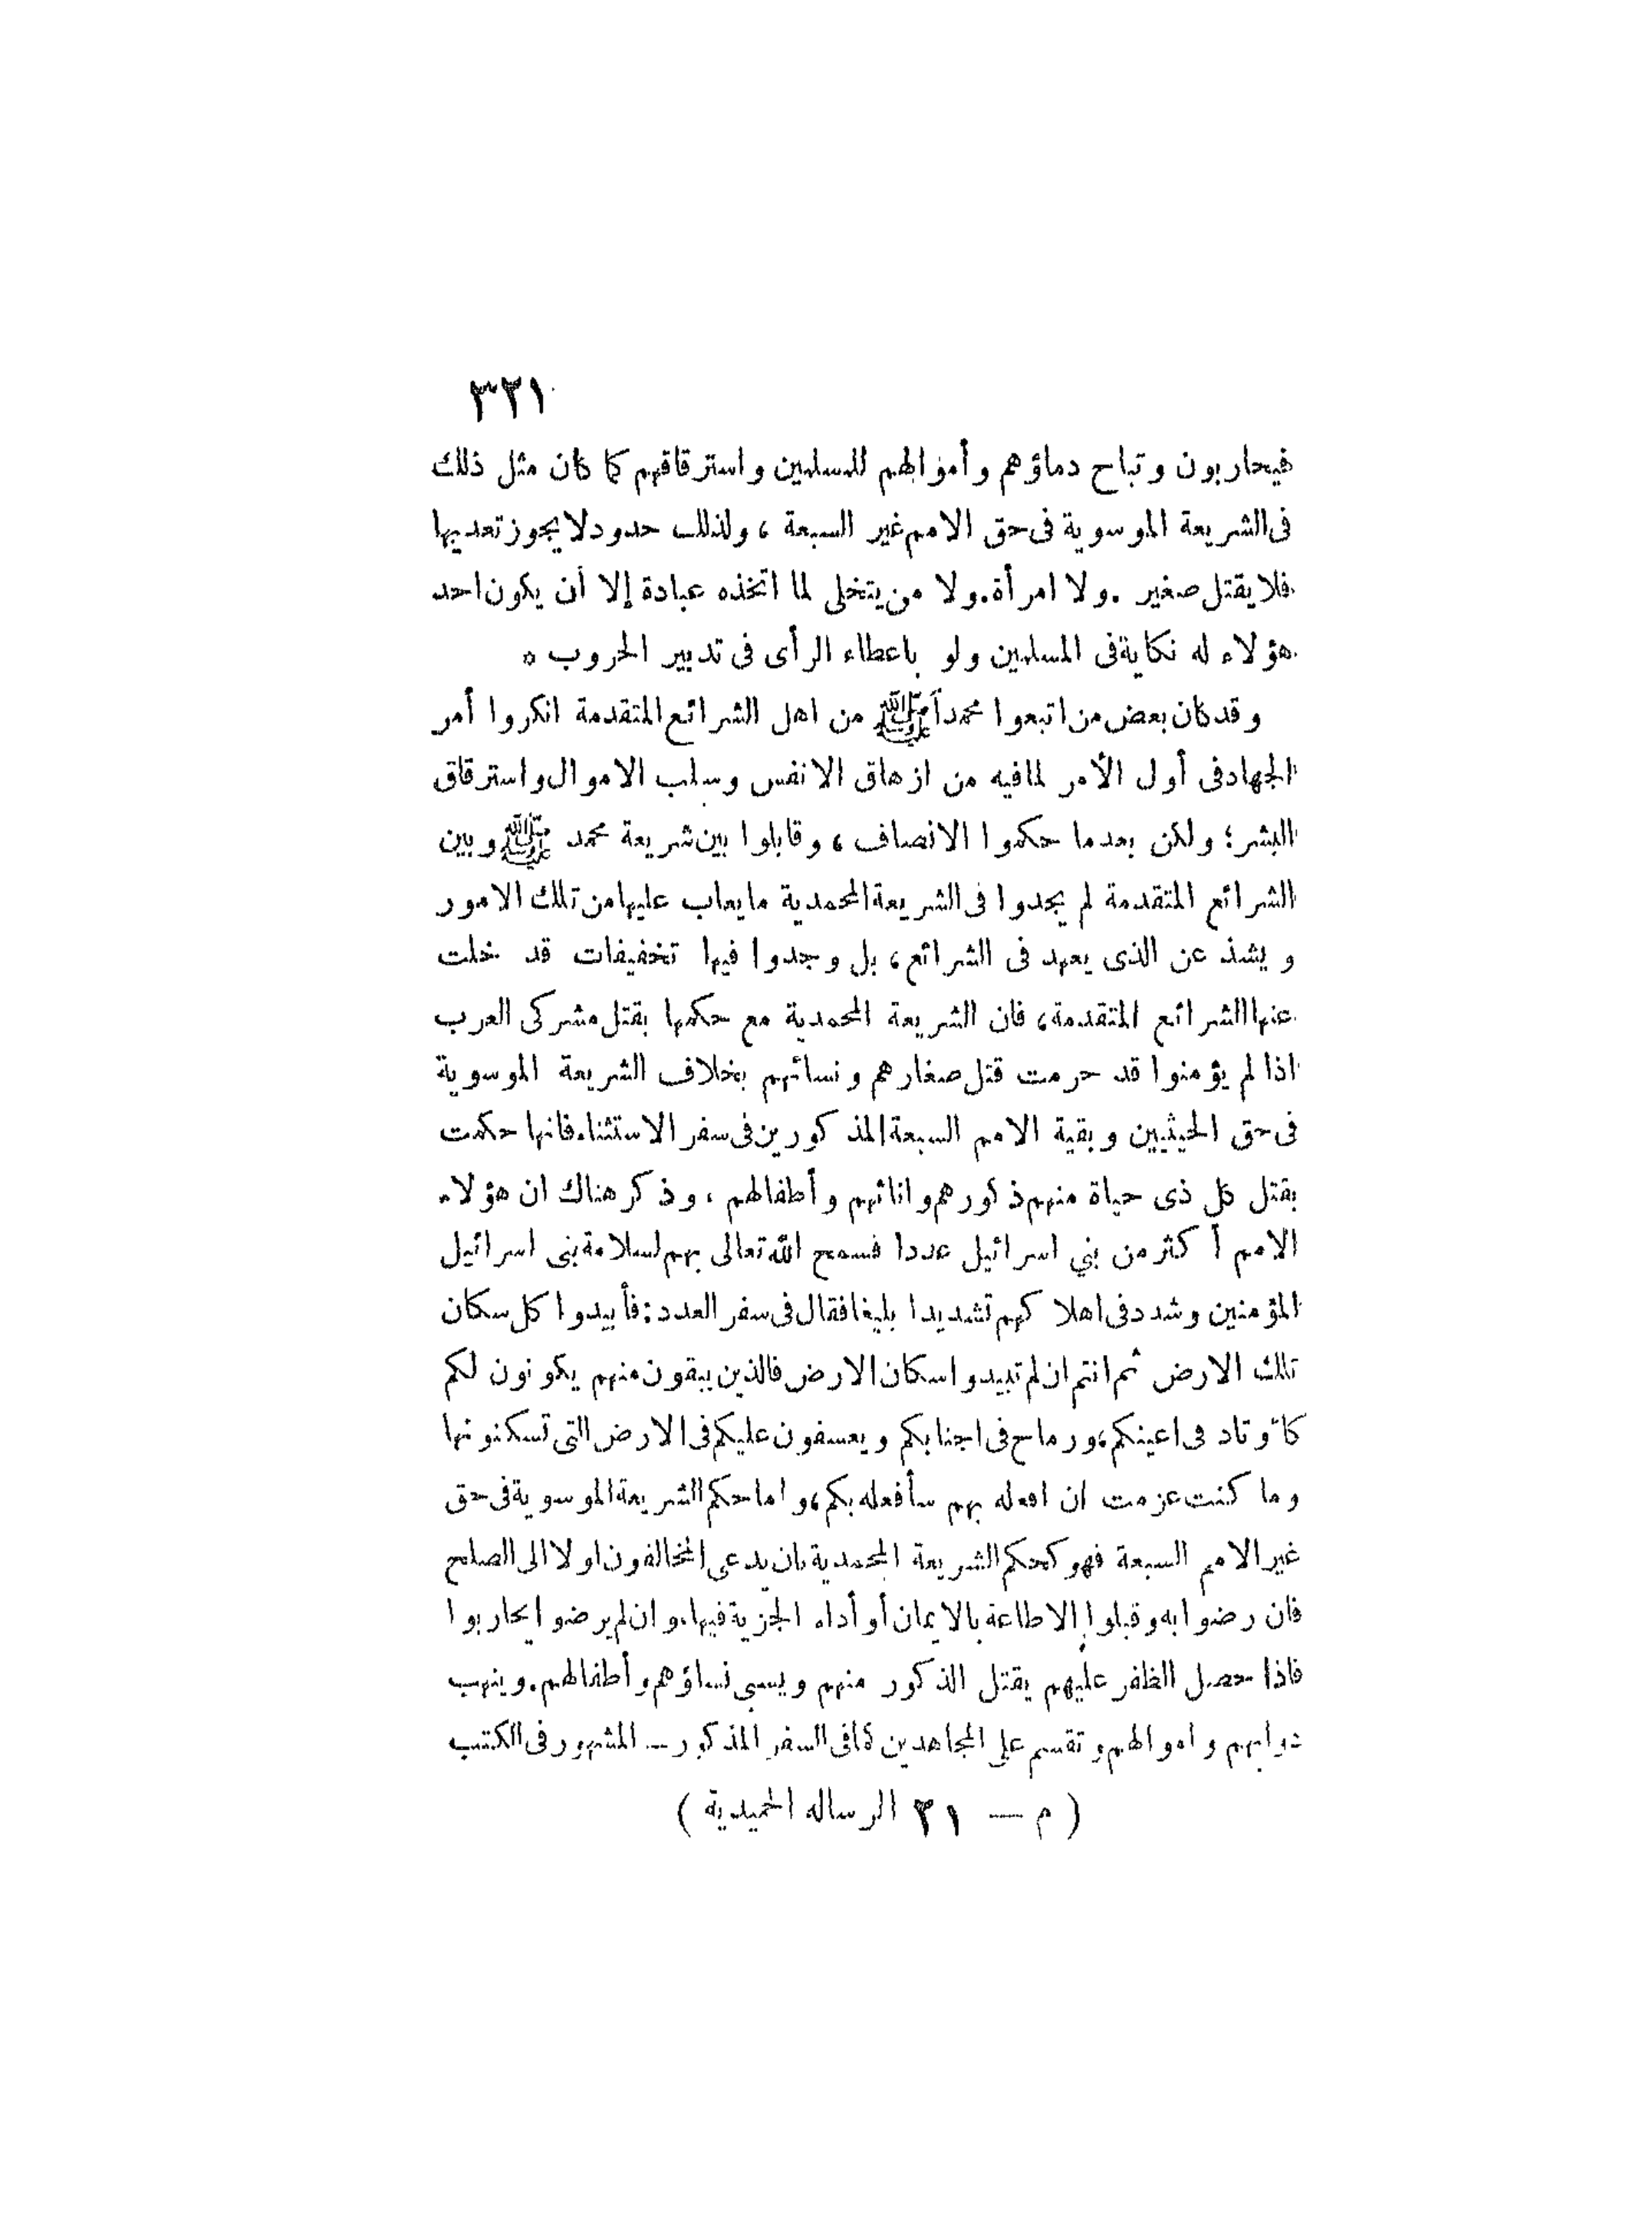 ٣٢١
فيحاربون وتباح دماؤهم وأموالهم للمسلمين واسترقاقهم كما كان مثل ذلك
فى الشريعة الموسوية فى حق الامم غير السبعة ، ولذلك حدود لا يجوز تعديها
فلا يقتل صغير . ولا امرأة . ولا من يتخلى لما اتخذه عبادة إلا أن يكون احد
هؤلاء له نكاية فى المسلمين ولو باعطاء الرأى فى تدبير الحروب *
وقد كان بعض من اتبعوا محمداً ﷺ من اهل الشرائع المتقدمة انكروا أمر
الجهاد فى أول الأمر لما فيه من ازهاق الانفس وسلب الاموال واسترقاق
البشر ؛ ولكن بعد ما حكموا الانصاف ، وقابلوا بين شريعة محمد ﷺ وبين
الشرائع المتقدمة لم يجدوا فى الشريعة المحمدية ما يعاب عليها من تلك الامور
ويشذ عن الذى يعهد فى الشرائع ، بل وجدوا فيها تخفيفات قد خلت
عنها الشرائع المتقدمة ، فان الشريعة المحمدية مع حكمها بقتل مشركى العرب
اذا لم يؤمنوا قد حرمت قتل صغارهم ونسائهم بخلاف الشريعة الموسوية
فى حق الحيثيين وبقية الامم السبعة المذكورين فى سفر الاستثناء فانها حكمت
بقتل كل ذى حياة منهم ذكورهم واناثهم وأطفالهم ، وذكر هناك ان هؤلاء
الامم أكثر من بني اسرائيل عددا فسمح الله تعالى بهم لسلامة بنى اسرائيل
المؤمنين وشدد فى اهلاكهم تشديدا بليغا فقال فى سفر العدد : فأبيدوا كل سكان
تلك الارض ثم انتم ان لم تبيدوا سكان الارض فالذين يبقون منهم يكونون لكم
كأوتاد فى اعينكم ، ورماح فى اجنابكم ويعسفون عليكم فى الارض التى تسكنونها
وما كنت عزمت ان افعله بهم سأفعله بكم ، واما حكم الشريعة الموسوية فى حق
غير الامم السبعة فهو كحكم الشريعة المحمدية بان يدعى المخالفون اولا الى الصلح
فان رضوا به وقبلوا الاطاعة بالايمان أو أداء الجزية فيها . وان لم يرضوا يحاربوا
فاذا حصل الظفر عليهم يقتل الذكور منهم ويسبى نساؤهم وأطفالهم . وينهب
دوابهم واموالهم وتقسم على المجاهدين كما فى السفر المذكور — المشهور فى الكتب
( م — ٢١ الرساله الحميدية )